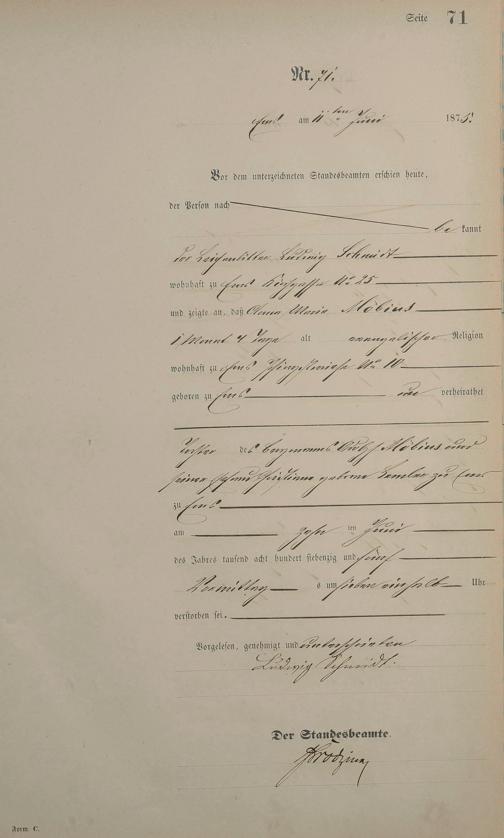 Seite 71
Nr. 71.
Ems am 11ten Juni 1875.
Vor dem unterzeichneten Standesbeamten erschien heute,
der Person nach
be kannt
der Leichenbitter Ludwig Schmidt
wohnhaft zu Ems No 25
und zeigte an, daß Maria Möbius
1 Monat 4 Tage alt evangelischer Religion
wohnhaft zu Ems No 10
geboren zu Ems un verheirathet
Tochter des Bergmanns Möbius und
seiner Ehefrau Christiane geborene zu Ems
zu Ems
am zehn ten Juni
des Jahres tausend acht hundert siebenzig und fünf
Vormittag s um sieben einhalb Uhr
verstorben sei.
Vorgelesen, genehmigt und unterschrieben
Ludwig Schmidt.
Der Standesbeamte.
Form. C.